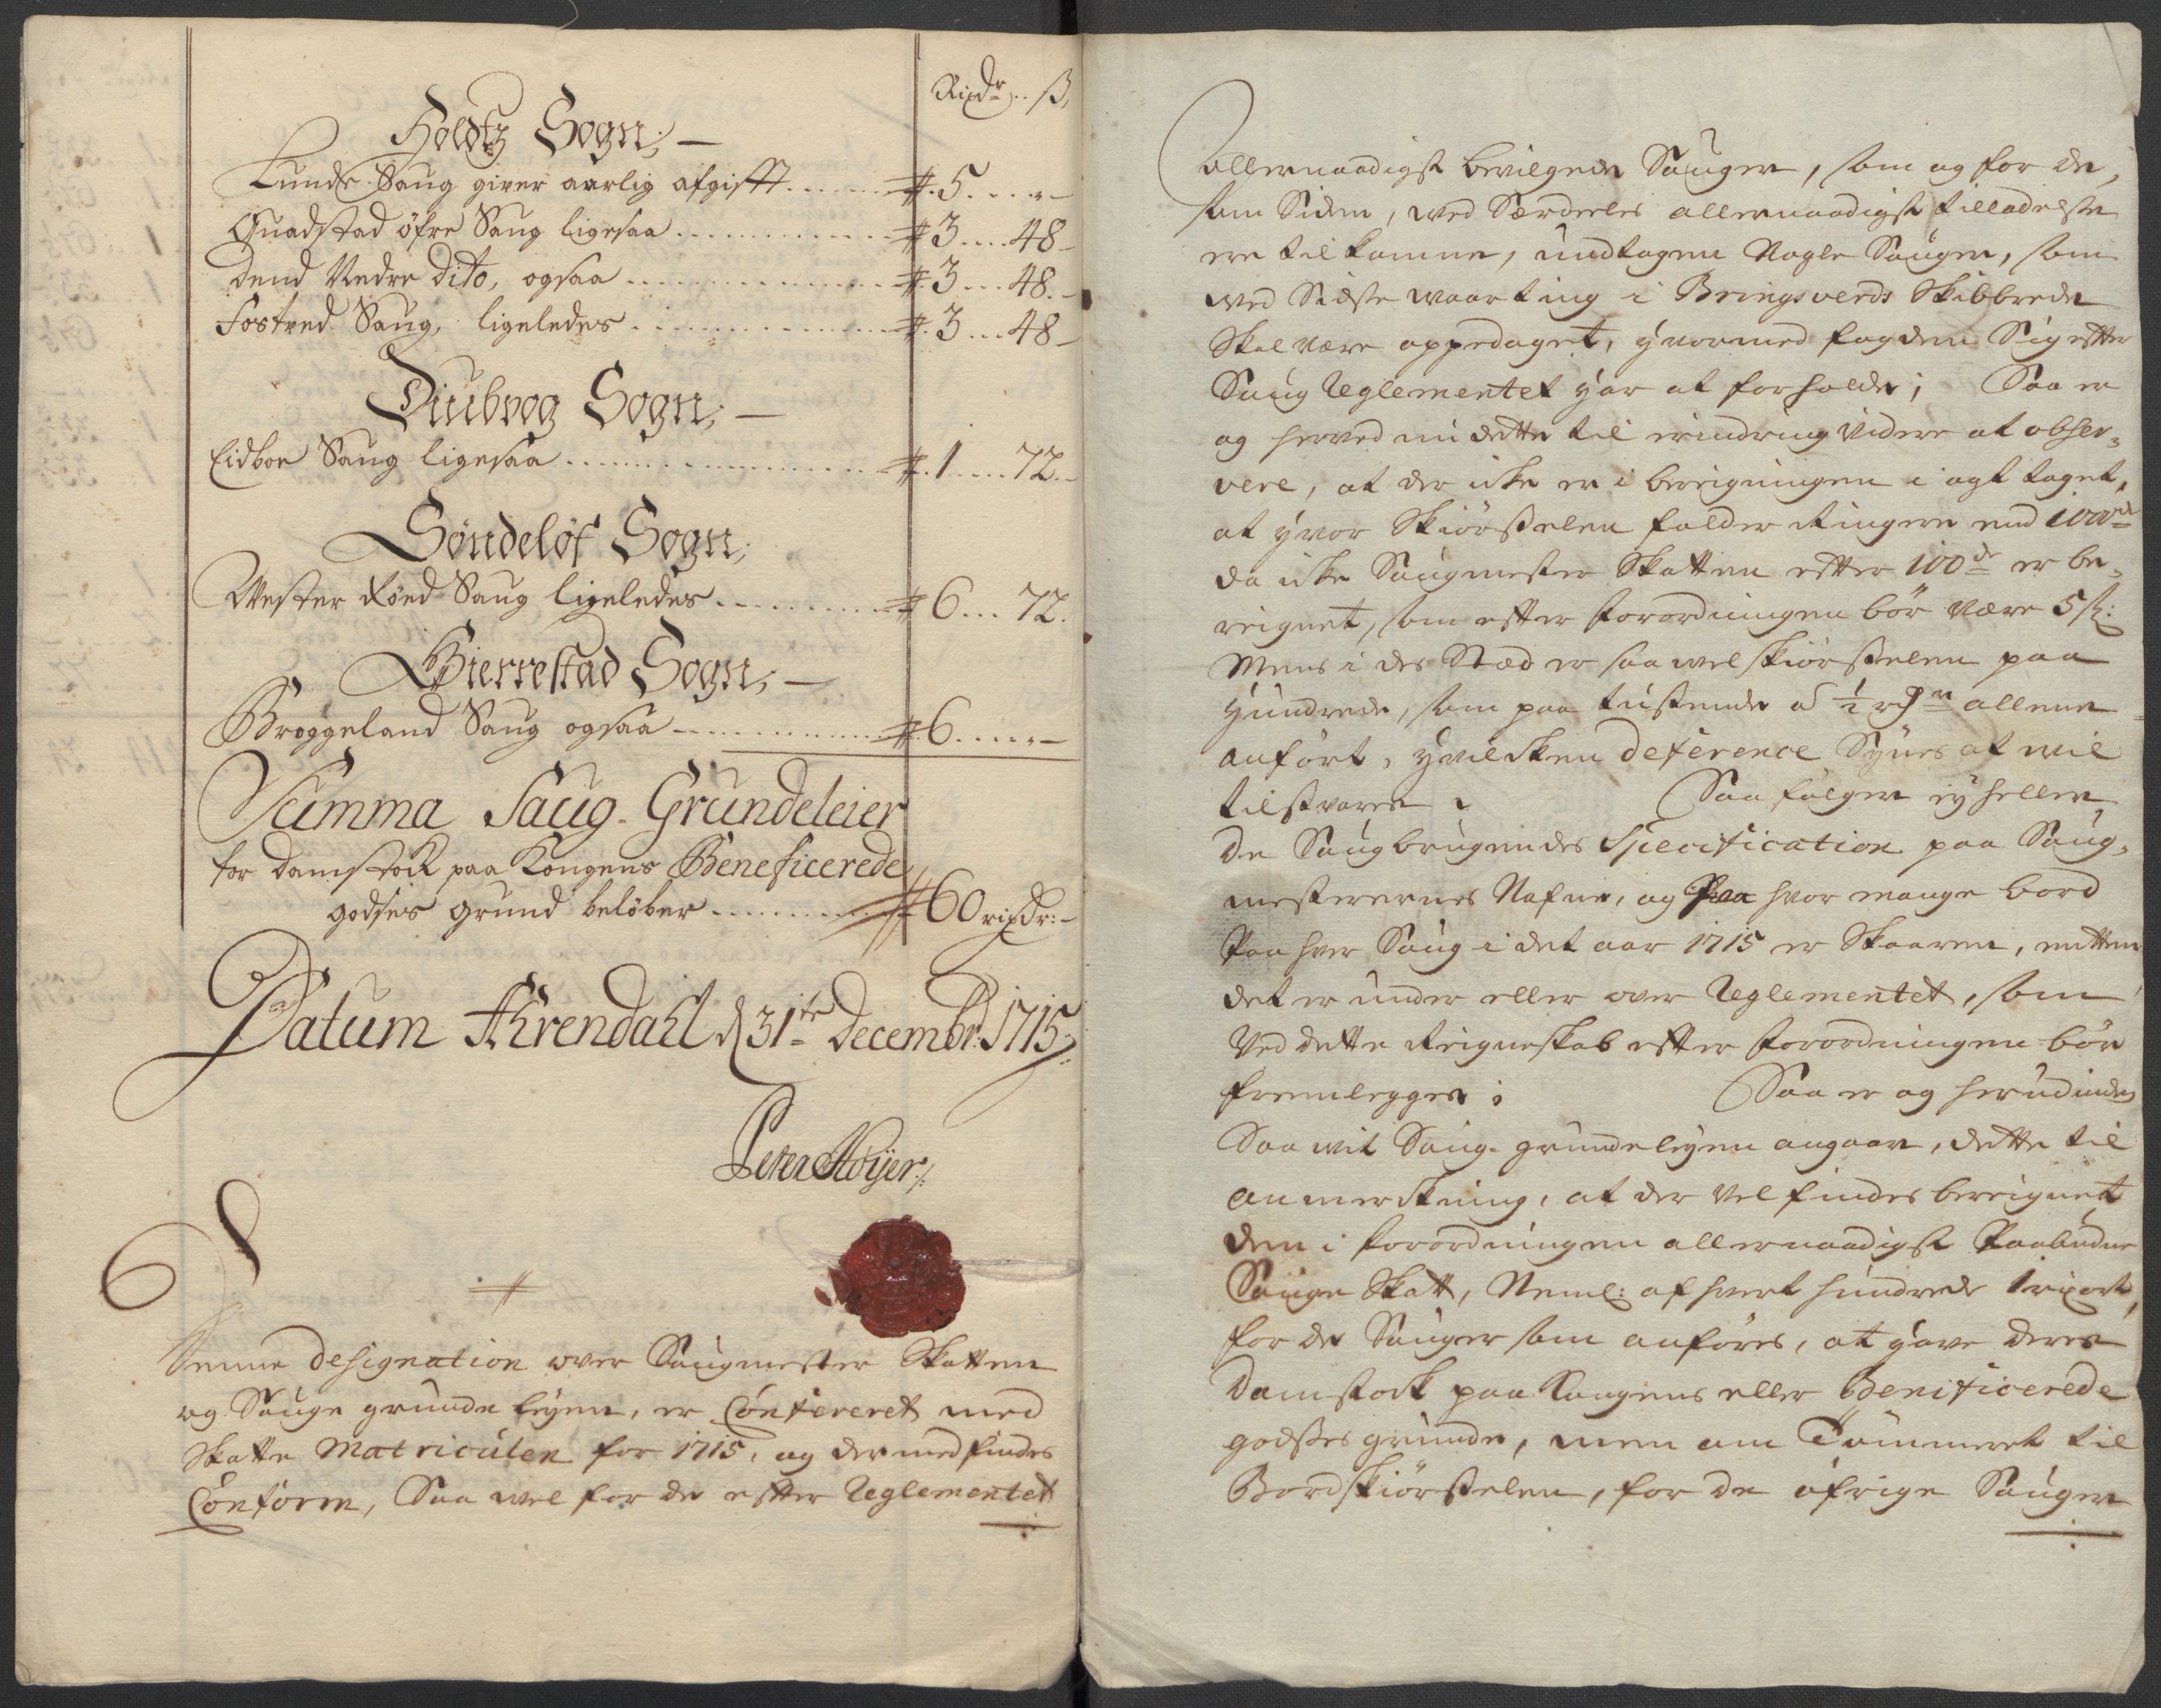 Rixdr.. ß,
Holdtz Sogn;—
Lunde Saug giver aarlig afgifft ....... # 5 .... „ -
Quadstad øfre Saug ligesaa ............ # 3 .... 48 -
Dend Nedre Dito, ogsaa ............... # 3 .... 48. -
Fostved Saug, ligeledes ............... # 3 .... 48 -
Diubvog Sogn;—
Eidboe Saug ligesaa ................... # 1 .... 72. -
Søndeløf Sogn;
Wester Røed Saug ligeledes ......... # 6 ... 72.
Gierrestad Sogn;—
Broggeland Saug ogsaa .............. # 6 ..... „ -
Summa Saug-Grundeleier
for Damstock paa Kongens Beneficerede
godses grund beløber ............ # 60 rixdr: -
Datum Ahrendahl d 31te Decembr: 1715
Peter
Denne Designation over Saugmester Skatten
og Sauge grunde leyen, er Confereret med
Skatte Matriculen for 1715, og dermed findes
Conform, Saa wel for de efter Reglementet
allernaadigst bevilgede Sauger, som og for de,
som Siden, wed Særdeeles allernaadigst tilladelse
ere tilkomne, undtagen Nogle Sauger, som
wed Sidste waar ting i Bringsverds Skibbrede
Skal være oppedaget, hvormed fogden Sig efter
Saug Reglementet har at forholde; Saa er
og herved nu dette til erindring Videre at obser-
vere, at der icke er i bereigningen i agt taget,
at hvor Skiørselen falder Ringere end 1000de
da icke Saugmester Skatten efter 100de er be-
reignet, som efter forordningen bør være 5 ß:
Mens i des Sted er saa wel skiørselen paa
hundrede, som paa tusende a ½ allene
anført, hvilcken deference Synes at wil
tilsvares. Saa følger ey heller
de Saugbrugendes Specification paa Saug-
mesterernes Nafne, og hvor mange bord
Paa hver Saug i det aar 1715 er Skaaren, enten
det er under eller over Reglementet, som
Ved dette Reigneskab efter forordningen bør
fremlegges; Saa er og herudinden
Saa wit Saug-grundeleyen angaar, dette til
anmerckning, at der Vel findes bereignet
den i forordningen allernaadigst Paabudne
Sauge Skatt, Neml: af hvert hundrede 1 rixort,
for de Sauger som anføres, at have deres
Damstock paa Kongens eller Benificerede
godses grunde, men om Tømmeret til
Bordskiørselen, for de øfrige Sauger